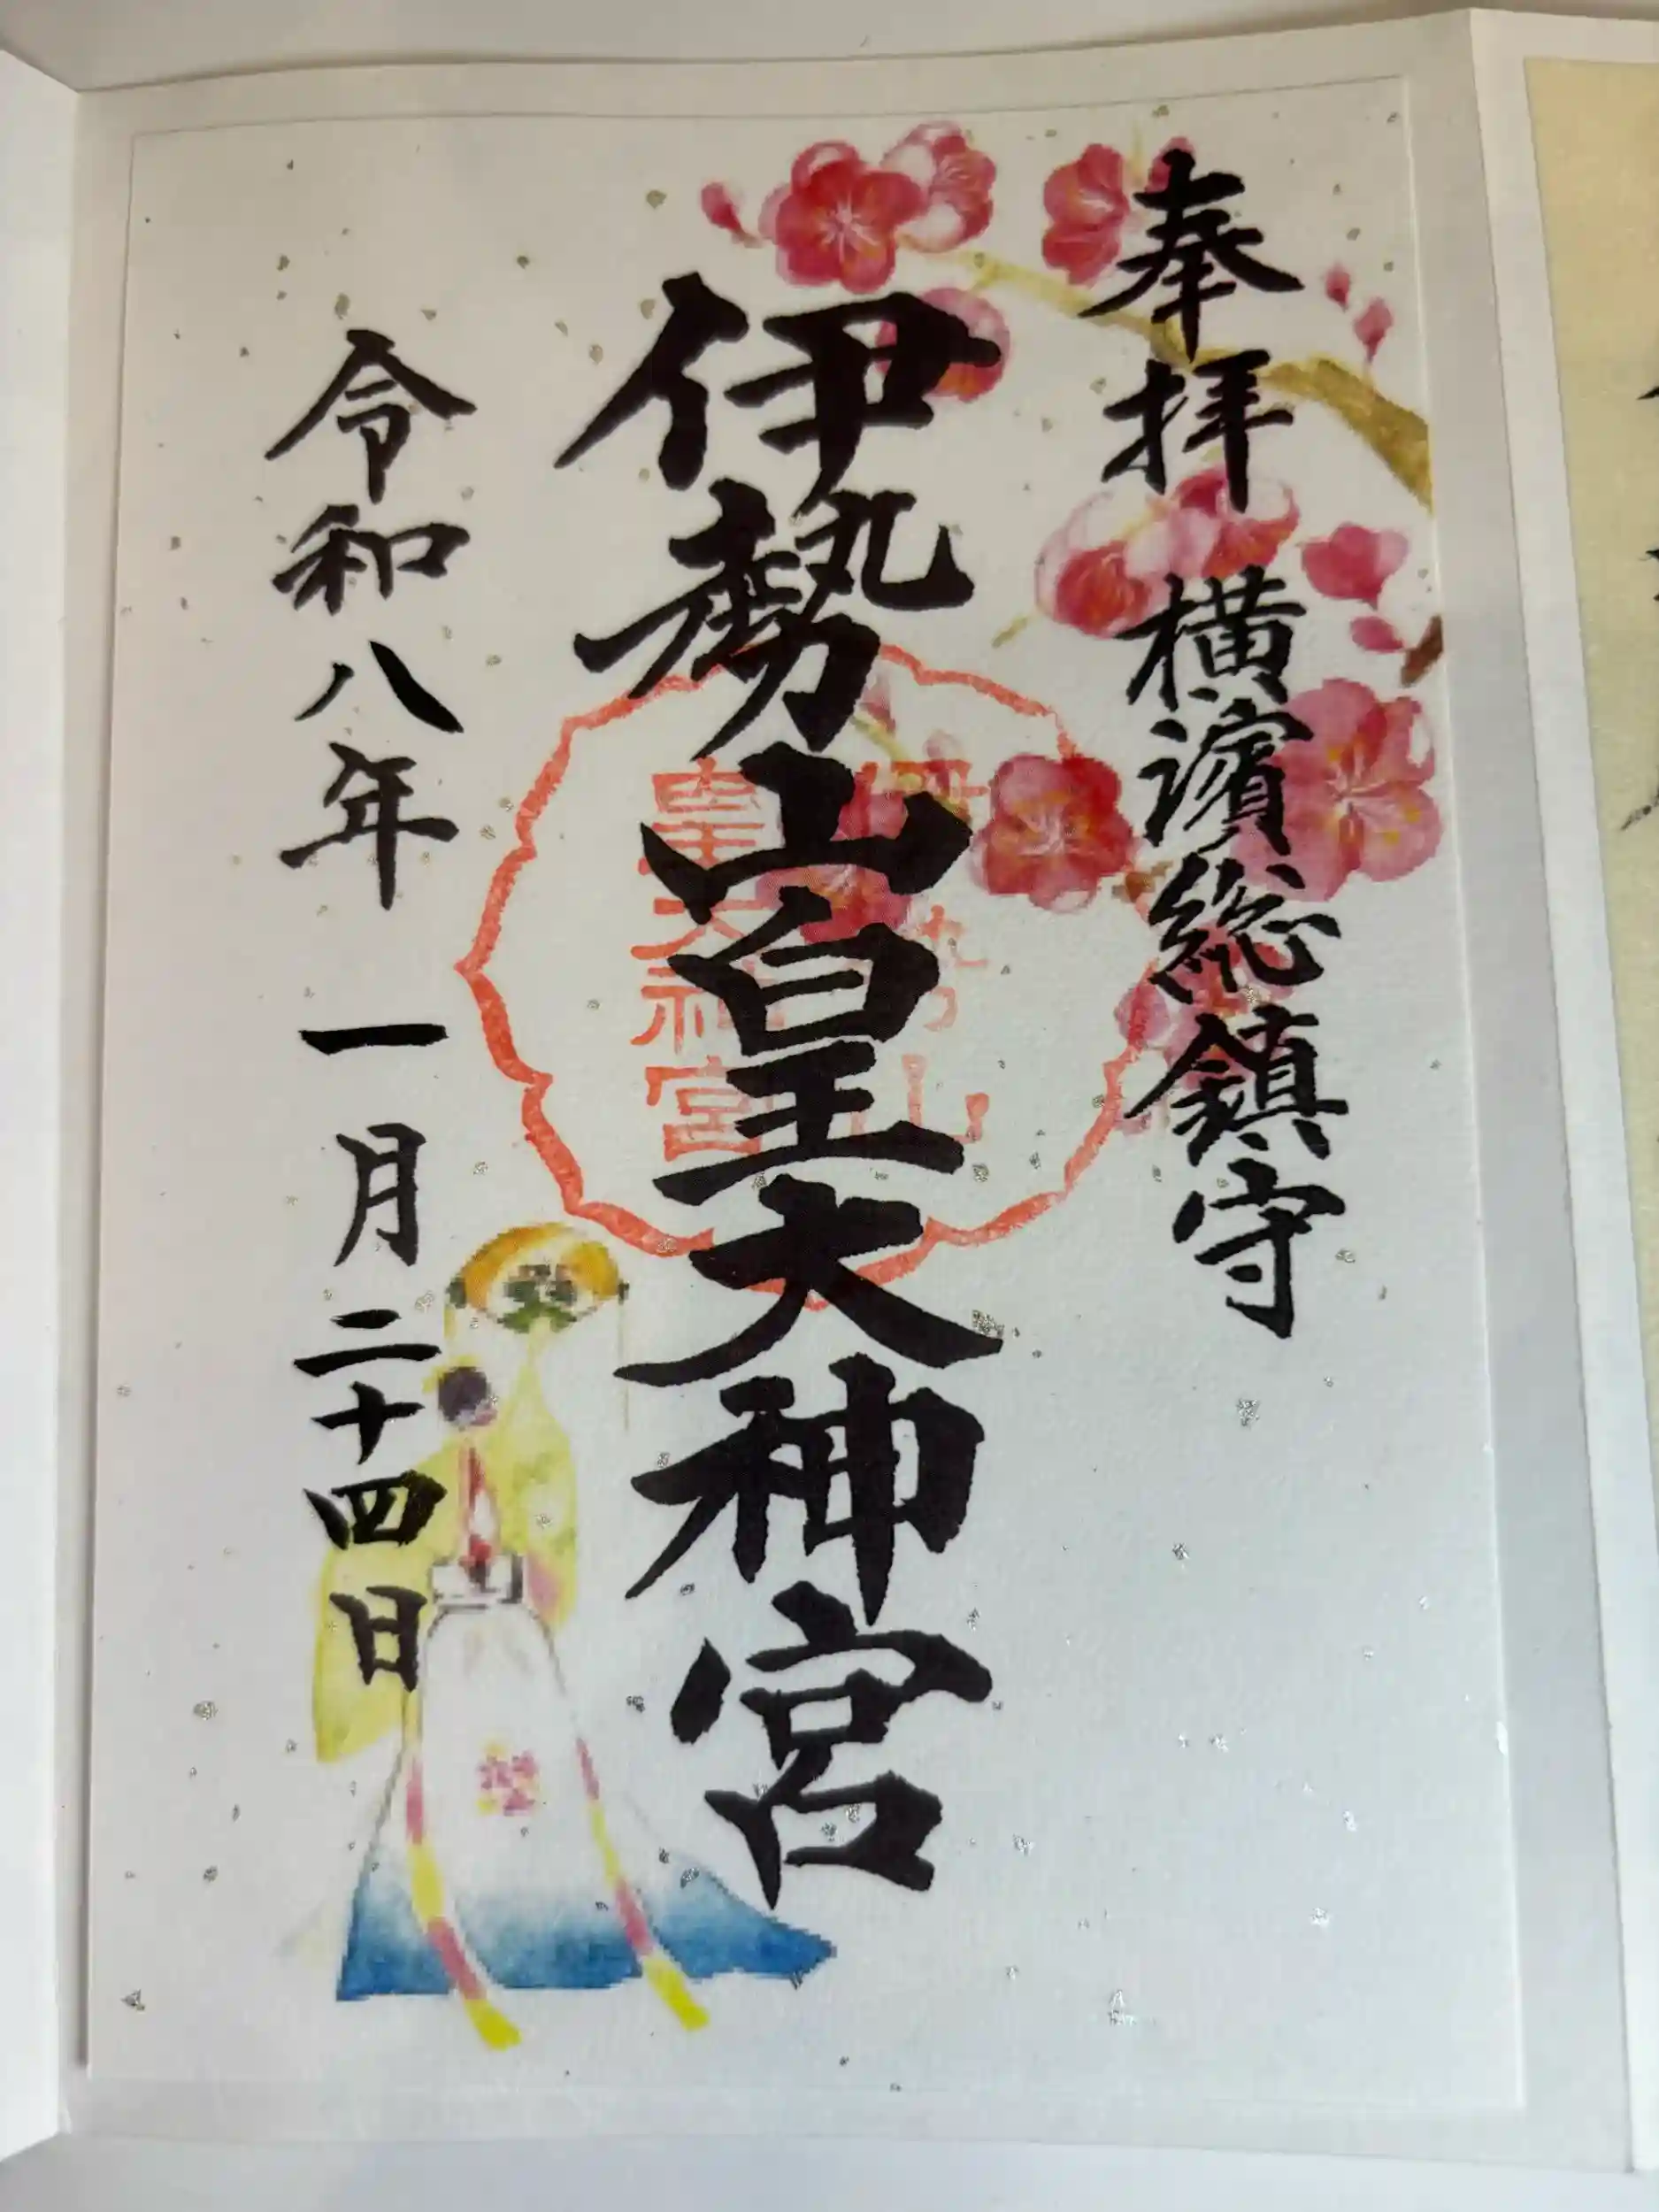 奉拝 横濱総鎮守
伊勢山皇大神宮
伊勢山
皇大神宮
令和八年 一月二十四日